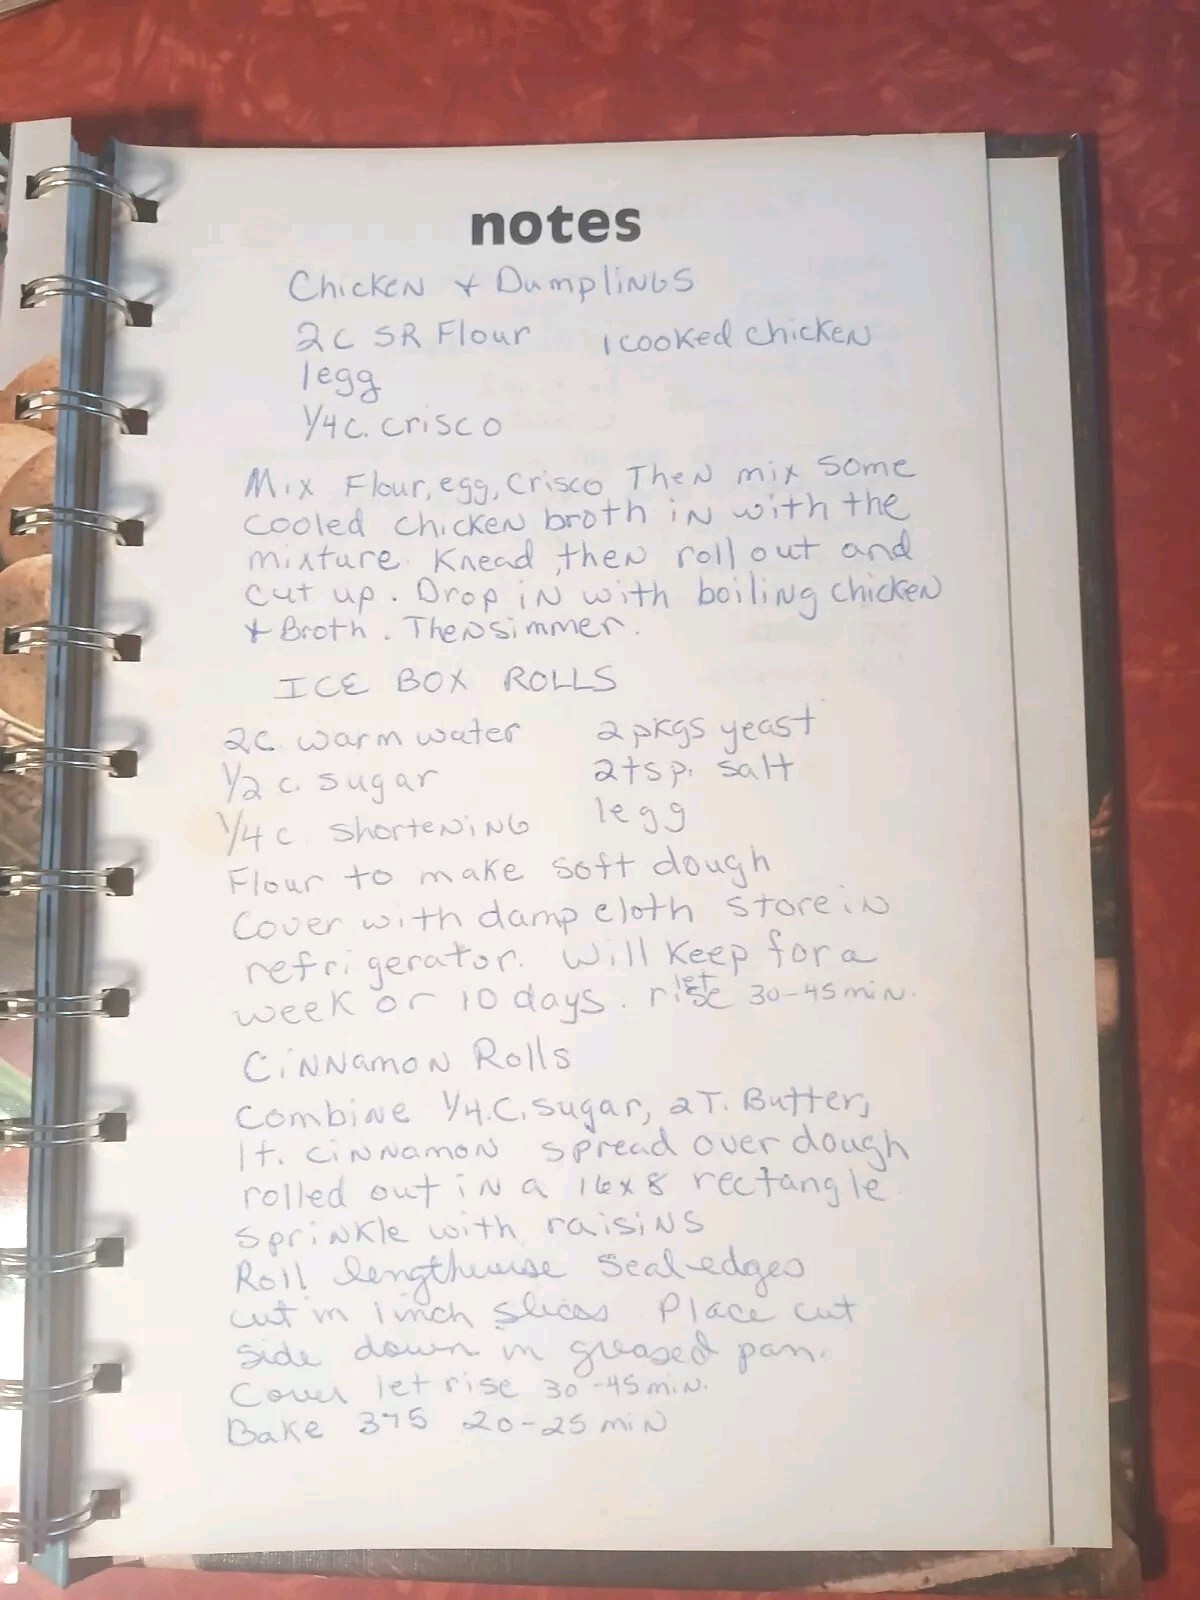 notes
Chicken & Dumplings
2c SR Flour 1 cooked chicken
1 egg
1/4 c. crisco
Mix Flour, egg, Crisco Then mix some
cooled chicken broth in with the
mixture. Knead, then roll out and
cut up. Drop in with boiling chicken
& Broth. Then simmer.
ICE BOX ROLLS
2c. warm water 2 pkgs yeast
1/2 c. sugar 2 tsp. salt
1/4 c. shortening 1 egg
Flour to make soft dough
Cover with damp cloth store in
refrigerator. Will keep for a
week or 10 days. let rise 30-45 min.
Cinnamon Rolls
Combine 1/4.C. sugar, 2T. Butter,
1t. cinnamon spread over dough
rolled out in a 16x8 rectangle
sprinkle with raisins
Roll lengthwise Seal edges
cut in 1 inch slices Place cut
side down in greased pan.
Cover let rise 30-45 min.
Bake 375 20-25 min